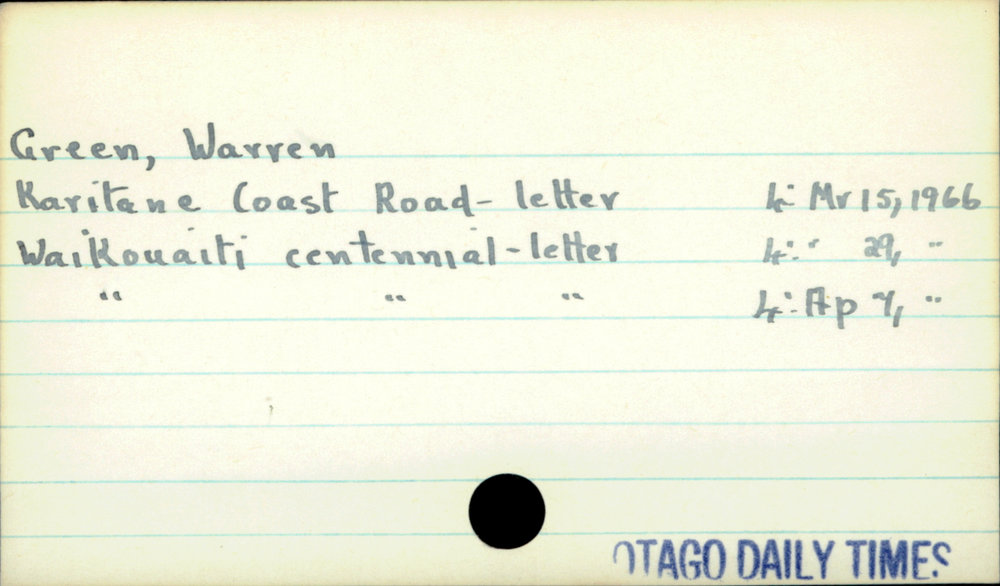 Green, Warren
Karitane Coast Road - letter 4: Mr 15, 1966
Waikouaiti centennial - letter 4: " 29, "
" " " 4: Ap 7, "
OTAGO DAILY TIMES